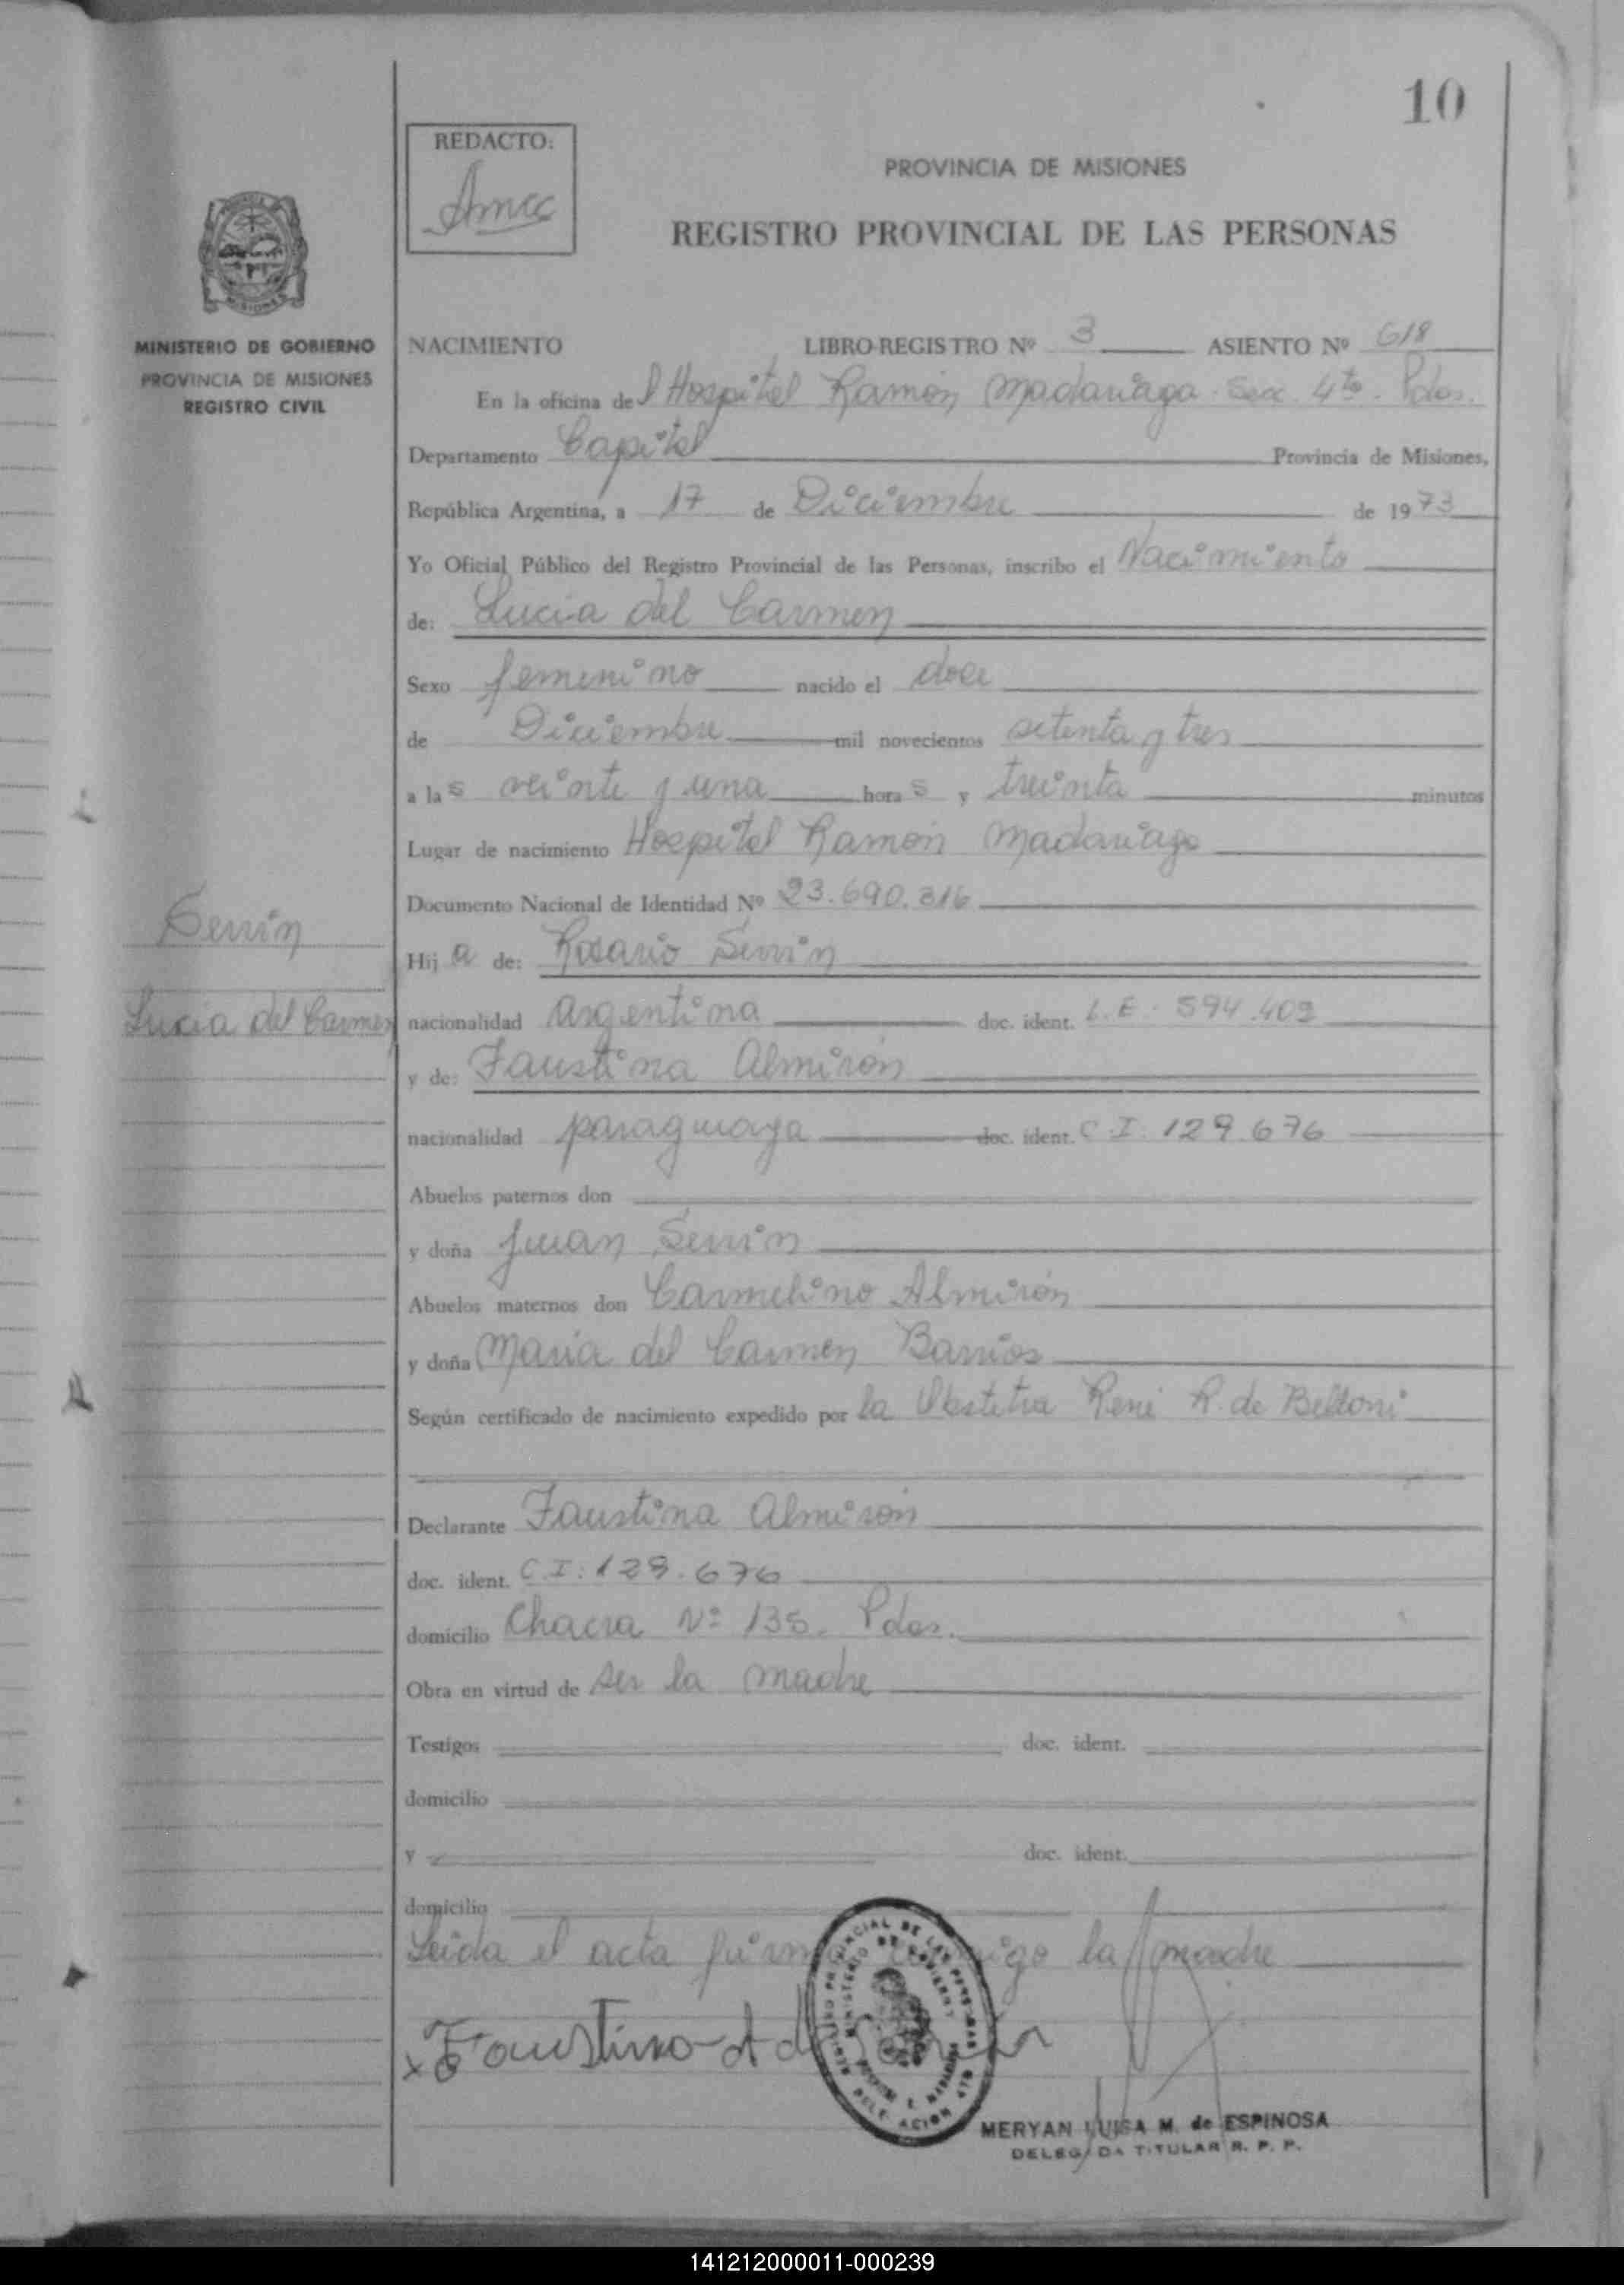 10
REDACTO:
PROVINCIA DE MISIONES
REGISTRO PROVINCIAL DE LAS PERSONAS
MISIONES
MINISTERIO DE GOBIERNO
PROVINCIA DE MISIONES
REGISTRO CIVIL
NACIMIENTO LIBRO-REGISTRO Nº 3 ASIENTO Nº 618
En la oficina del Hospital Ramón Madariaga Sec. 4ta. Pdas.
Departamento Capital Provincia de Misiones,
República Argentina, a 17 de Diciembre de 1973
Yo Oficial Público del Registro Provincial de las Personas, inscribo el Nacimiento
de: Lucia del Carmen
Sexo femenino nacido el doce
de Diciembre mil novecientos setenta y tres
a las veinte y una horas y treinta minutos
Lugar de nacimiento Hospital Ramón Madariaga
Documento Nacional de Identidad Nº 23.690.316
Servin
Hija de: Rosario Servin
Lucia del Carmen
nacionalidad argentina doc. ident. L.E. 594.409
y de: Faustina Almirón
nacionalidad paraguaya doc. ident. C.I. 129.676
Abuelos paternos don
y doña Juan Servin
Abuelos maternos don Carmelino Almirón
y doña Maria del Carmen Barrios
Según certificado de nacimiento expedido por la Obstetra René R. de Beltoni
Declarante Faustina Almirón
doc. ident. C.I: 129.676
domicilio Chacra Nº 135. Pdas.
Obra en virtud de ser la madre
Testigos doc. ident.
domicilio
y doc. ident.
domicilio
Leida el acta firma conmigo la madre
MERYAN LUISA M. de ESPINOSA
DELEGADA TITULAR R. P. P.
141212000011-000239